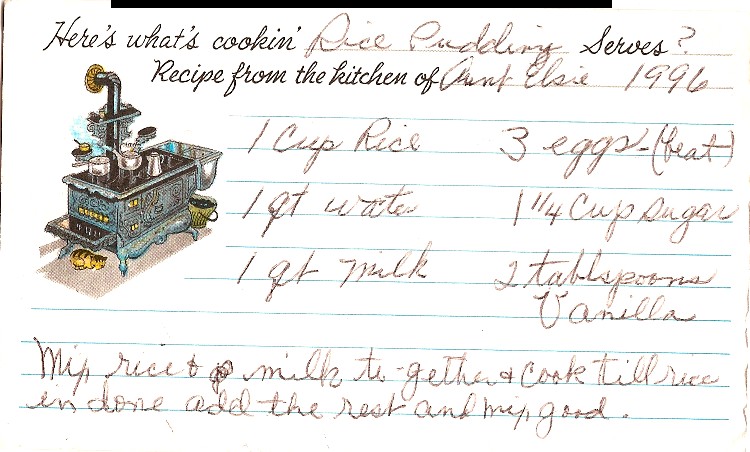 Here's what's cookin' Rice Pudding Serves ?
Recipe from the kitchen of Aunt Elsie 1996
1 Cup Rice 3 eggs - (beat)
1 qt water 1 1/4 Cup Sugar
1 qt milk 2 tablspoons
Vanilla
Mix rice & milk to-gether & Cook till rice
in done add the rest and mix good.